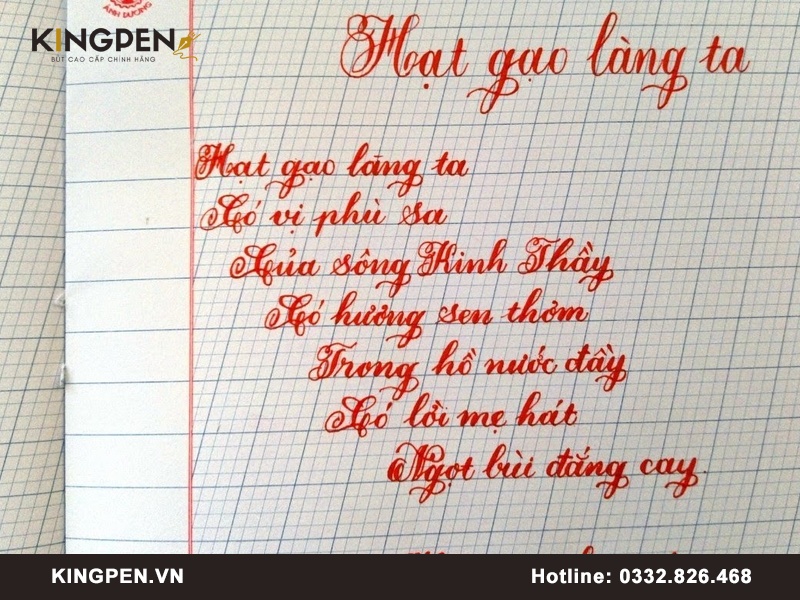 ÁNH DƯƠNG
KINGPEN
BÚT CAO CẤP CHÍNH HÃNG
Hạt gạo làng ta
Hạt gạo làng ta
Có vị phù sa
Của sông Kinh Thầy
Có hương sen thơm
Trong hồ nước đầy
Có lời mẹ hát
Ngọt bùi đắng cay.
KINGPEN.VN
Hotline: 0332.826.468